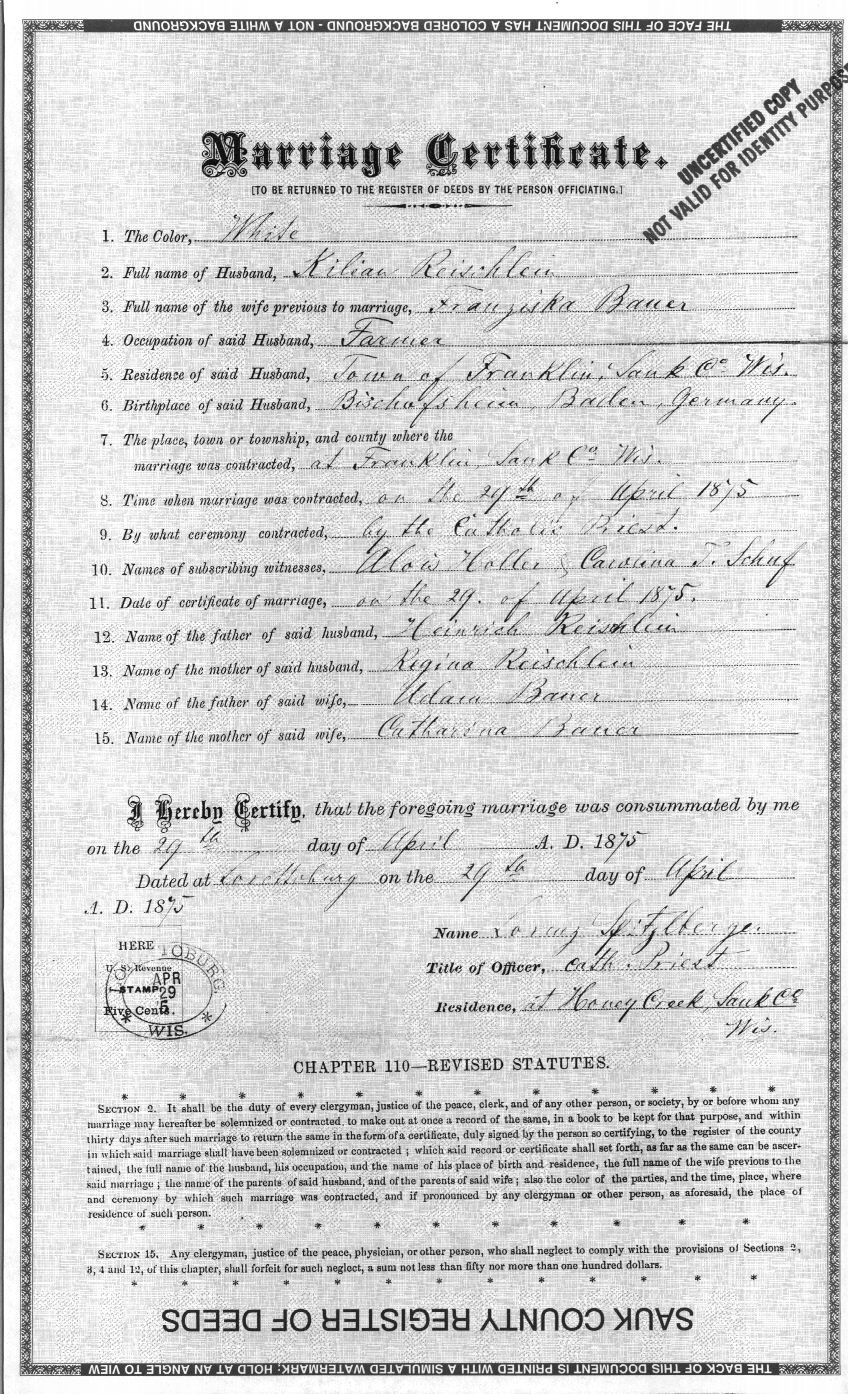 THE FACE OF THIS DOCUMENT HAS A COLORED BACKGROUND - NOT A WHITE BACKGROUND
UNCERTIFIED COPY
NOT VALID FOR IDENTITY PURPOSE
Marriage Certificate.
[TO BE RETURNED TO THE REGISTER OF DEEDS BY THE PERSON OFFICIATING.]
1. The Color, White
2. Full name of Husband, Kilian Reischlein
3. Full name of the wife previous to marriage, Franziska Bauer
4. Occupation of said Husband, Farmer
5. Residense of said Husband, Town of Franklin, Sauk Co Wis.
6. Birthplace of said Husband, Bischofsheim, Baden, Germany.
7. The place, town or township, and county where the
marriage was contracted, at Franklin, Sauk Co Wis.
8. Time when marriage was contracted, on the 29th of April 1875
9. By what ceremony contracted, by the Catholic Priest.
10. Names of subscribing witnesses, Alois Holler & Carolina T. Schuf
11. Date of certificate of marriage, on the 29. of April 1875.
12. Name of the father of said husband, Heinrich Reischlein
13. Name of the mother of said husband, Regina Reischlein
14. Name of the father of said wife, Adam Bauer
15. Name of the mother of said wife, Catharina Bauer
I Hereby Certify, that the foregoing marriage was consummated by me
on the 29th day of April A. D. 1875
Dated at Lorettoburg on the 29th day of April
A. D. 1875
Name Lorenz Spitzlberger
Title of Officer, Cath. Priest
Residence, at Honey Creek, Sauk Co
Wis.
HERE
U. S. Revenue
STAMP
Five Cents.
TOBURG,
APR
29
5
* WIS. *
CHAPTER 110—REVISED STATUTES.
* * * * * * * * * * * *
SECTION 2. It shall be the duty of every clergyman, justice of the peace, clerk, and of any other person, or society, by or before whom any
marriage may hereafter be solemnized or contracted, to make out at once a record of the same, in a book to be kept for that purpose, and within
thirty days after such marriage to return the same in the form of a certificate, duly signed by the person so certifying, to the register of the county
in which said marriage shall have been solemnized or contracted ; which said record or certificate shall set forth, as far as the same can be ascer-
tained, the full name of the husband, his occupation, and the name of his place of birth and residence, the full name of the wife previous to the
said marriage ; the name of the parents of said husband, and of the parents of said wife ; also the color of the parties, and the time, place, where
and ceremony by which such marriage was contracted, and if pronounced by any clergyman or other person, as aforesaid, the place of
residence of such person.
* * * * * * * * * * *
SECTION 15. Any clergyman, justice of the peace, physician, or other person, who shall neglect to comply with the provisions of Sections 2,
3, 4 and 12, of this chapter, shall forfeit for such neglect, a sum not less than fifty nor more than one hundred dollars.
* * * * * * * * * * *
SAUK COUNTY REGISTER OF DEEDS
THE BACK OF THIS DOCUMENT IS PRINTED WITH A SIMULATED WATERMARK: HOLD AT AN ANGLE TO VIEW